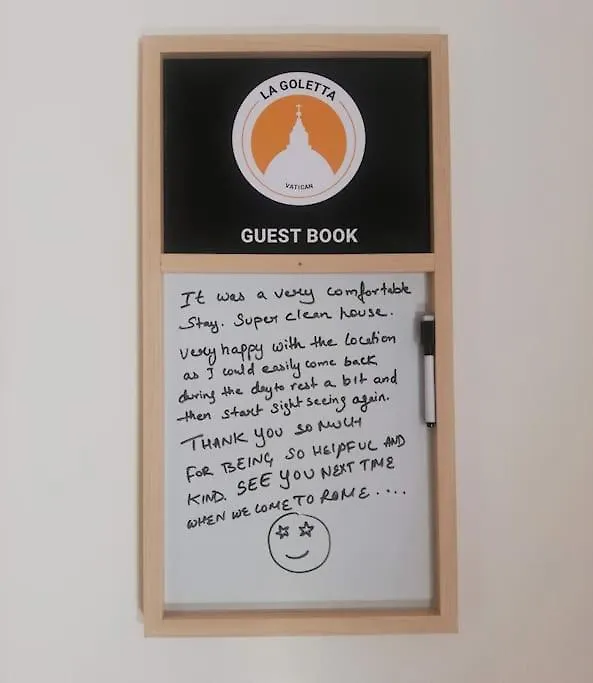 LA GOLETTA
VATICAN
GUEST BOOK
It was a very comfortable
Stay. Super clean house.
Very happy with the location
as I could easily come back
during the day to rest a bit and
then start sight seeing again.
THANK YOU SO MUCH
FOR BEING SO HELPFUL AND
KIND. SEE YOU NEXT TIME
WHEN WE COME TO ROME....